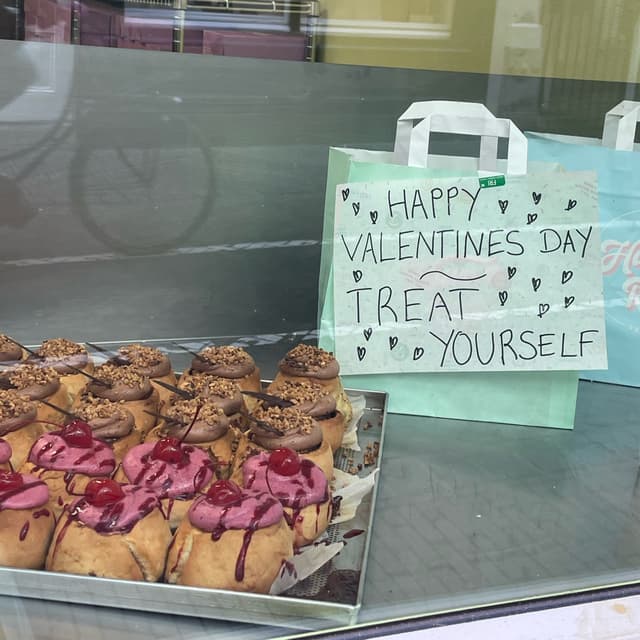 HAPPY
VALENTINES DAY
TREAT
YOURSELF